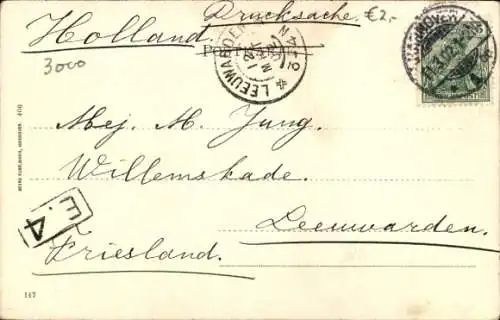 Drucksache. €2,-
Holland
3000
LEEUWARDEN
HANNOVER
Mej. M. Jung.
Willemskade.
Leeuwarden.
Friesland.
E.
4
147